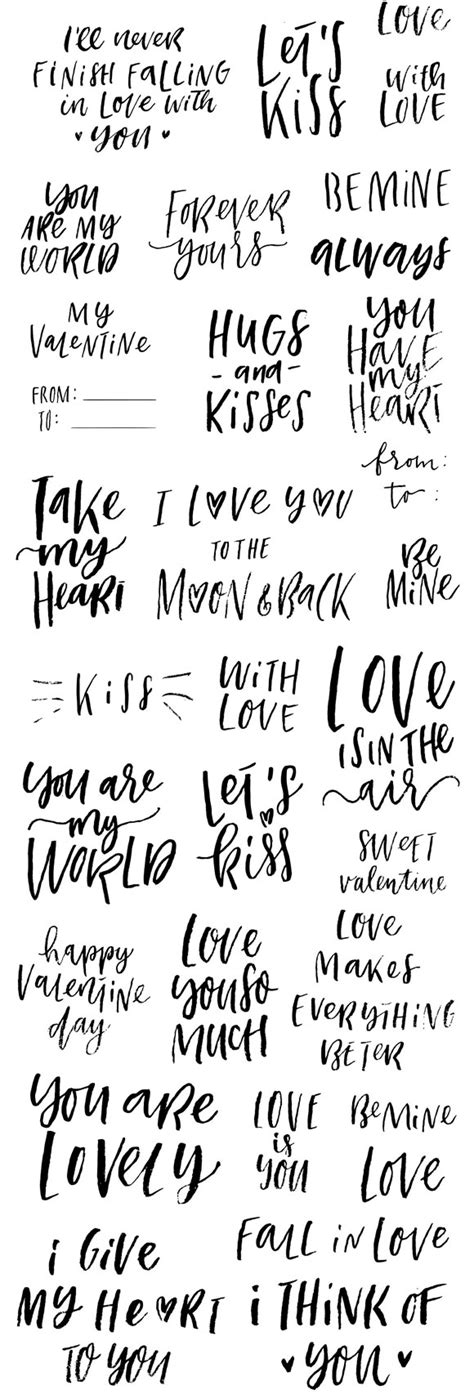 I'll never
FINISH FALLING
in Love with
you
Let's
Kiss
Love
with
LOVE
You
ARE MY
WORLD
Forever
yours
BE MINE
always
My
Valentine
FROM:
TO:
HUGS
- and -
Kisses
You
Have
my
Heart
from:
to:
Take
my
Heart
I Love you
TO THE
Moon & Back
Be
Mine
Kiss
With
Love
Love
is in the
air
You are
my
World
Let's
kiss
Sweet
valentine
happy
Valentine
day
Love
you so
much
Love
Makes
Everything
Beter
You are
Lovely
Love
is
you
Be mine
Love
i Give
My Heart
to you
Fall in Love
i Think of
you